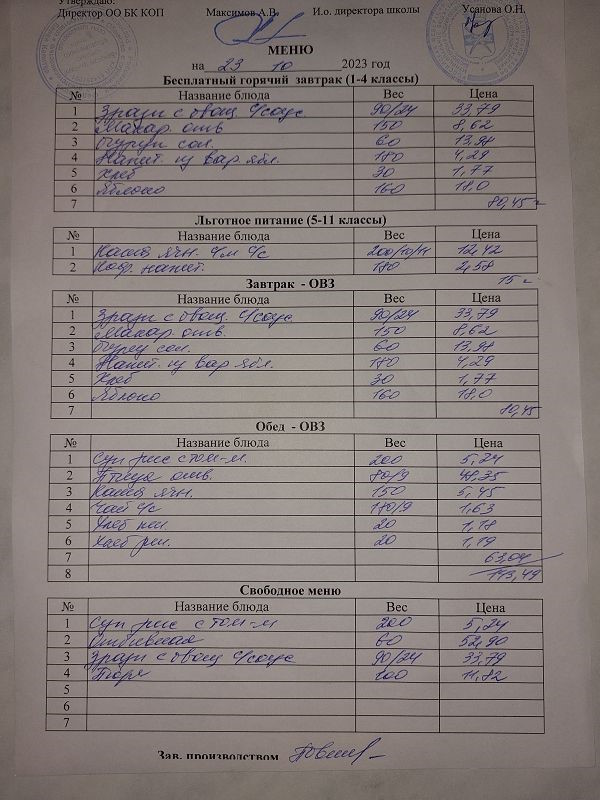 Утверждаю:
Директор ОО БК КОП Максимов А.В. И.о. директора школы Усанова О.Н.
МЕНЮ
на 23 10 2023 год
Бесплатный горячий завтрак (1-4 классы)
№ Название блюда Вес Цена
1 Зразы с овощ с/соус 90/24 33,79
2 Макар. отв 150 8,62
3 Огурцы сол. 60 13,98
4 Напит. из вар ябл. 180 4,29
5 Хлеб 30 1,77
6 Яблоко 160 18,0
7 80,45
Льготное питание (5-11 классы)
№ Название блюда Цена
1 Каша ячн. с/м с/с 200/10/11 12,42
2 Коф. напит. 180 2,58
15
Завтрак - ОВЗ
№ Название блюда Вес Цена
1 Зразы с овощ. с/соус 90/24 33,79
2 Макар отв. 150 8,62
3 Огурц сол. 60 13,98
4 Напит. из вар ябл. 180 4,29
5 Хлеб 30 1,77
6 Яблоко 160 18,0
7 80,45
Обед - ОВЗ
№ Название блюда Вес Цена
1 Суп рис с том-м. 200 5,24
2 Птица отв. 80/9 48,35
3 Каша ячн. 150 5,45
4 Чай с/с 180/9 1,63
5 Хлеб 20 1,18
6 Хлеб рж. 20 1,19
7 63,04
8 143,49
Свободное меню
№ Название блюда Вес Цена
1 Суп рис с том-м 200 5,24
2 Отбивная 60 52,90
3 Зразы с овощ с/соус 90/24 33,79
4 Пюре 100 11,82
5
6
7
Зав. производством